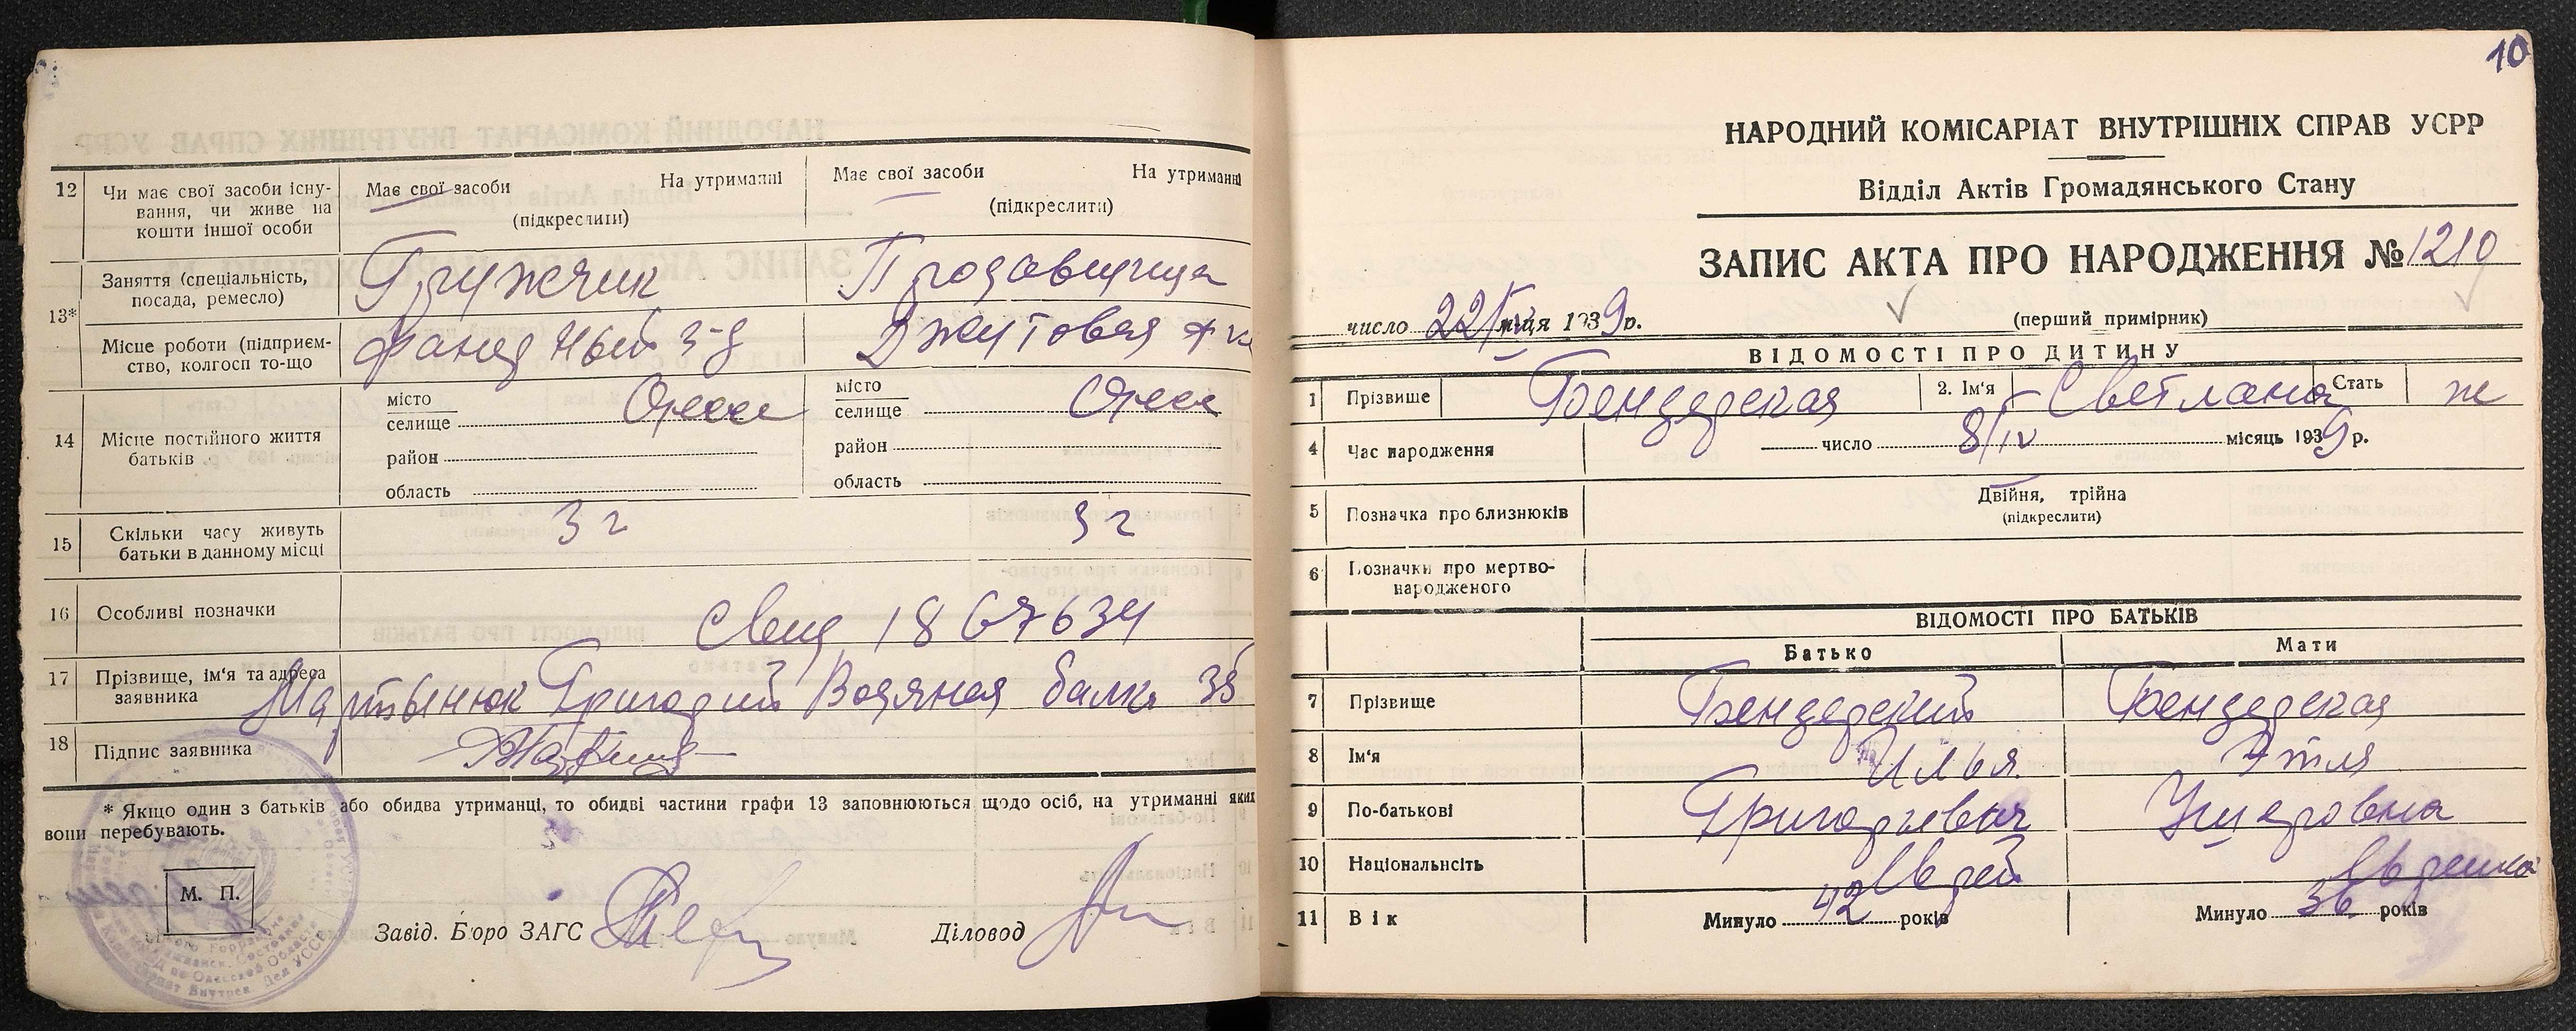 12 Чи має свої засоби існу-
вання, чи живе на
кошти іншої особи
Має свої засоби На утриманні
(підкреслити)
Має свої засоби На утриманні
(підкреслити)
13* Заняття (спеціальність,
посада, ремесло)
Грузчик
Продавщица
Місце роботи (підприєм-
ство, колгосп то-що
Фанерный з-д
Джутовая ф-ка
14 Місце постійного життя
батьків
місто
селище Одесса
район
область
місто
селище Одесса
район
область
15 Скільки часу живуть
батьки в данному місці
3 г
3 г
16 Особливі позначки
Свид 1867634
17 Прізвище, ім'я та адреса
заявника
Мартынюк Григорий Водяная балка 35
18 Підпис заявника
* Якщо один з батьків або обидва утриманці, то обидві частини графи 13 заповнюються щодо осіб, на утриманні яких
вони перебувають.
М. П.
Завід. Бюро ЗАГС
Діловод
10
НАРОДНИЙ КОМІСАРІАТ ВНУТРІШНІХ СПРАВ УСРР
Відділ Актів Громадянського Стану
ЗАПИС АКТА ПРО НАРОДЖЕННЯ № 1210
число 22/IV м-ця 1939 р.
(перший примірник)
ВІДОМОСТІ ПРО ДИТИНУ
1 Прізвище Бендерская 2. Ім'я Светлана Стать ж
4 Час народження число 8/IV місяць 1939 р.
5 Позначка про близнюків
Двійня, трійна
(підкреслити)
6 Позначки про мертво-
народженого
ВІДОМОСТІ ПРО БАТЬКІВ
Батько Мати
7 Прізвище Бендерский Бендерская
8 Ім'я Илья Этля
9 По-батькові Григорьевич
10 Національнсіть Еврей Еврейка
11 Вік Минуло 42 років Минуло 36 років